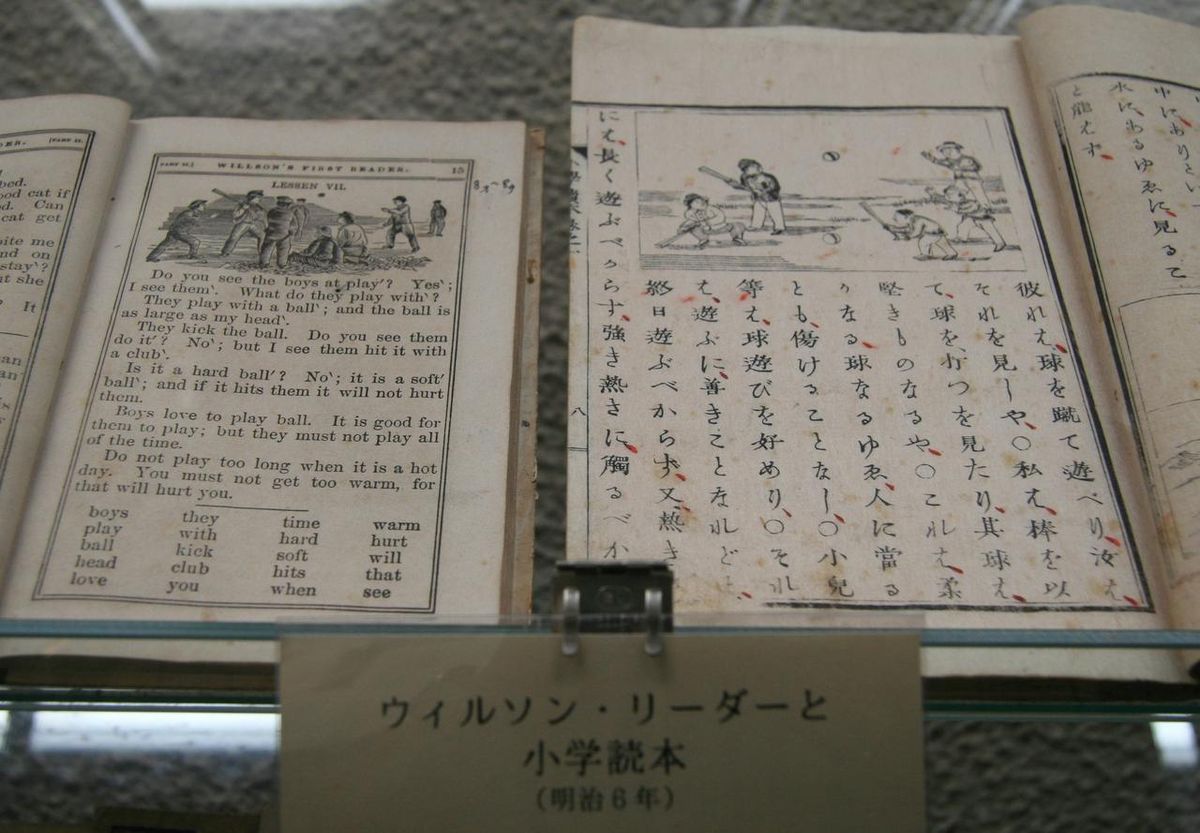 DER. [PART II.
bed.
ood cat if
d. Can
cat get
ite me
nd on
stay'?
ut she
? It
PART II.] WILLSON'S FIRST READER. 15
LESSON VII.
Do you see the boys at play'? Yes`;
I see them`. What do they play with`?
They play with a ball`; and the ball is
as large as my head`.
They kick the ball. Do you see them
do it'? No`; but I see them hit it with
a club`.
Is it a hard ball'? No`; it is a soft'
ball`; and if it hits them it will not hurt
them.
Boys love to play ball. It is good for
them to play; but they must not play all
of the time.
Do not play too long when it is a hot
day. You must not get too warm, for
that will hurt you.
boys they time warm
play with hard hurt
ball kick soft will
head club hits that
love you when see
水にあるゆゑに、見るこ
と能はず、
彼れは、球を蹴て遊べり、汝は、
それを見しや、○私は、棒を以
て、球を打つを見たり、其球は、
堅きものなるや、○これは、柔
かなる球なるゆゑ、人に當る
とも、傷けることなし、○小兒
等は、球遊びを好めり、○それ
は、遊ぶに、善きことなれども、
終日遊ぶべからず、又、熱き
には、長く遊ぶべからす、強き熱きに、觸るべか
八
ウィルソン・リーダーと
小学読本
（明治6年）